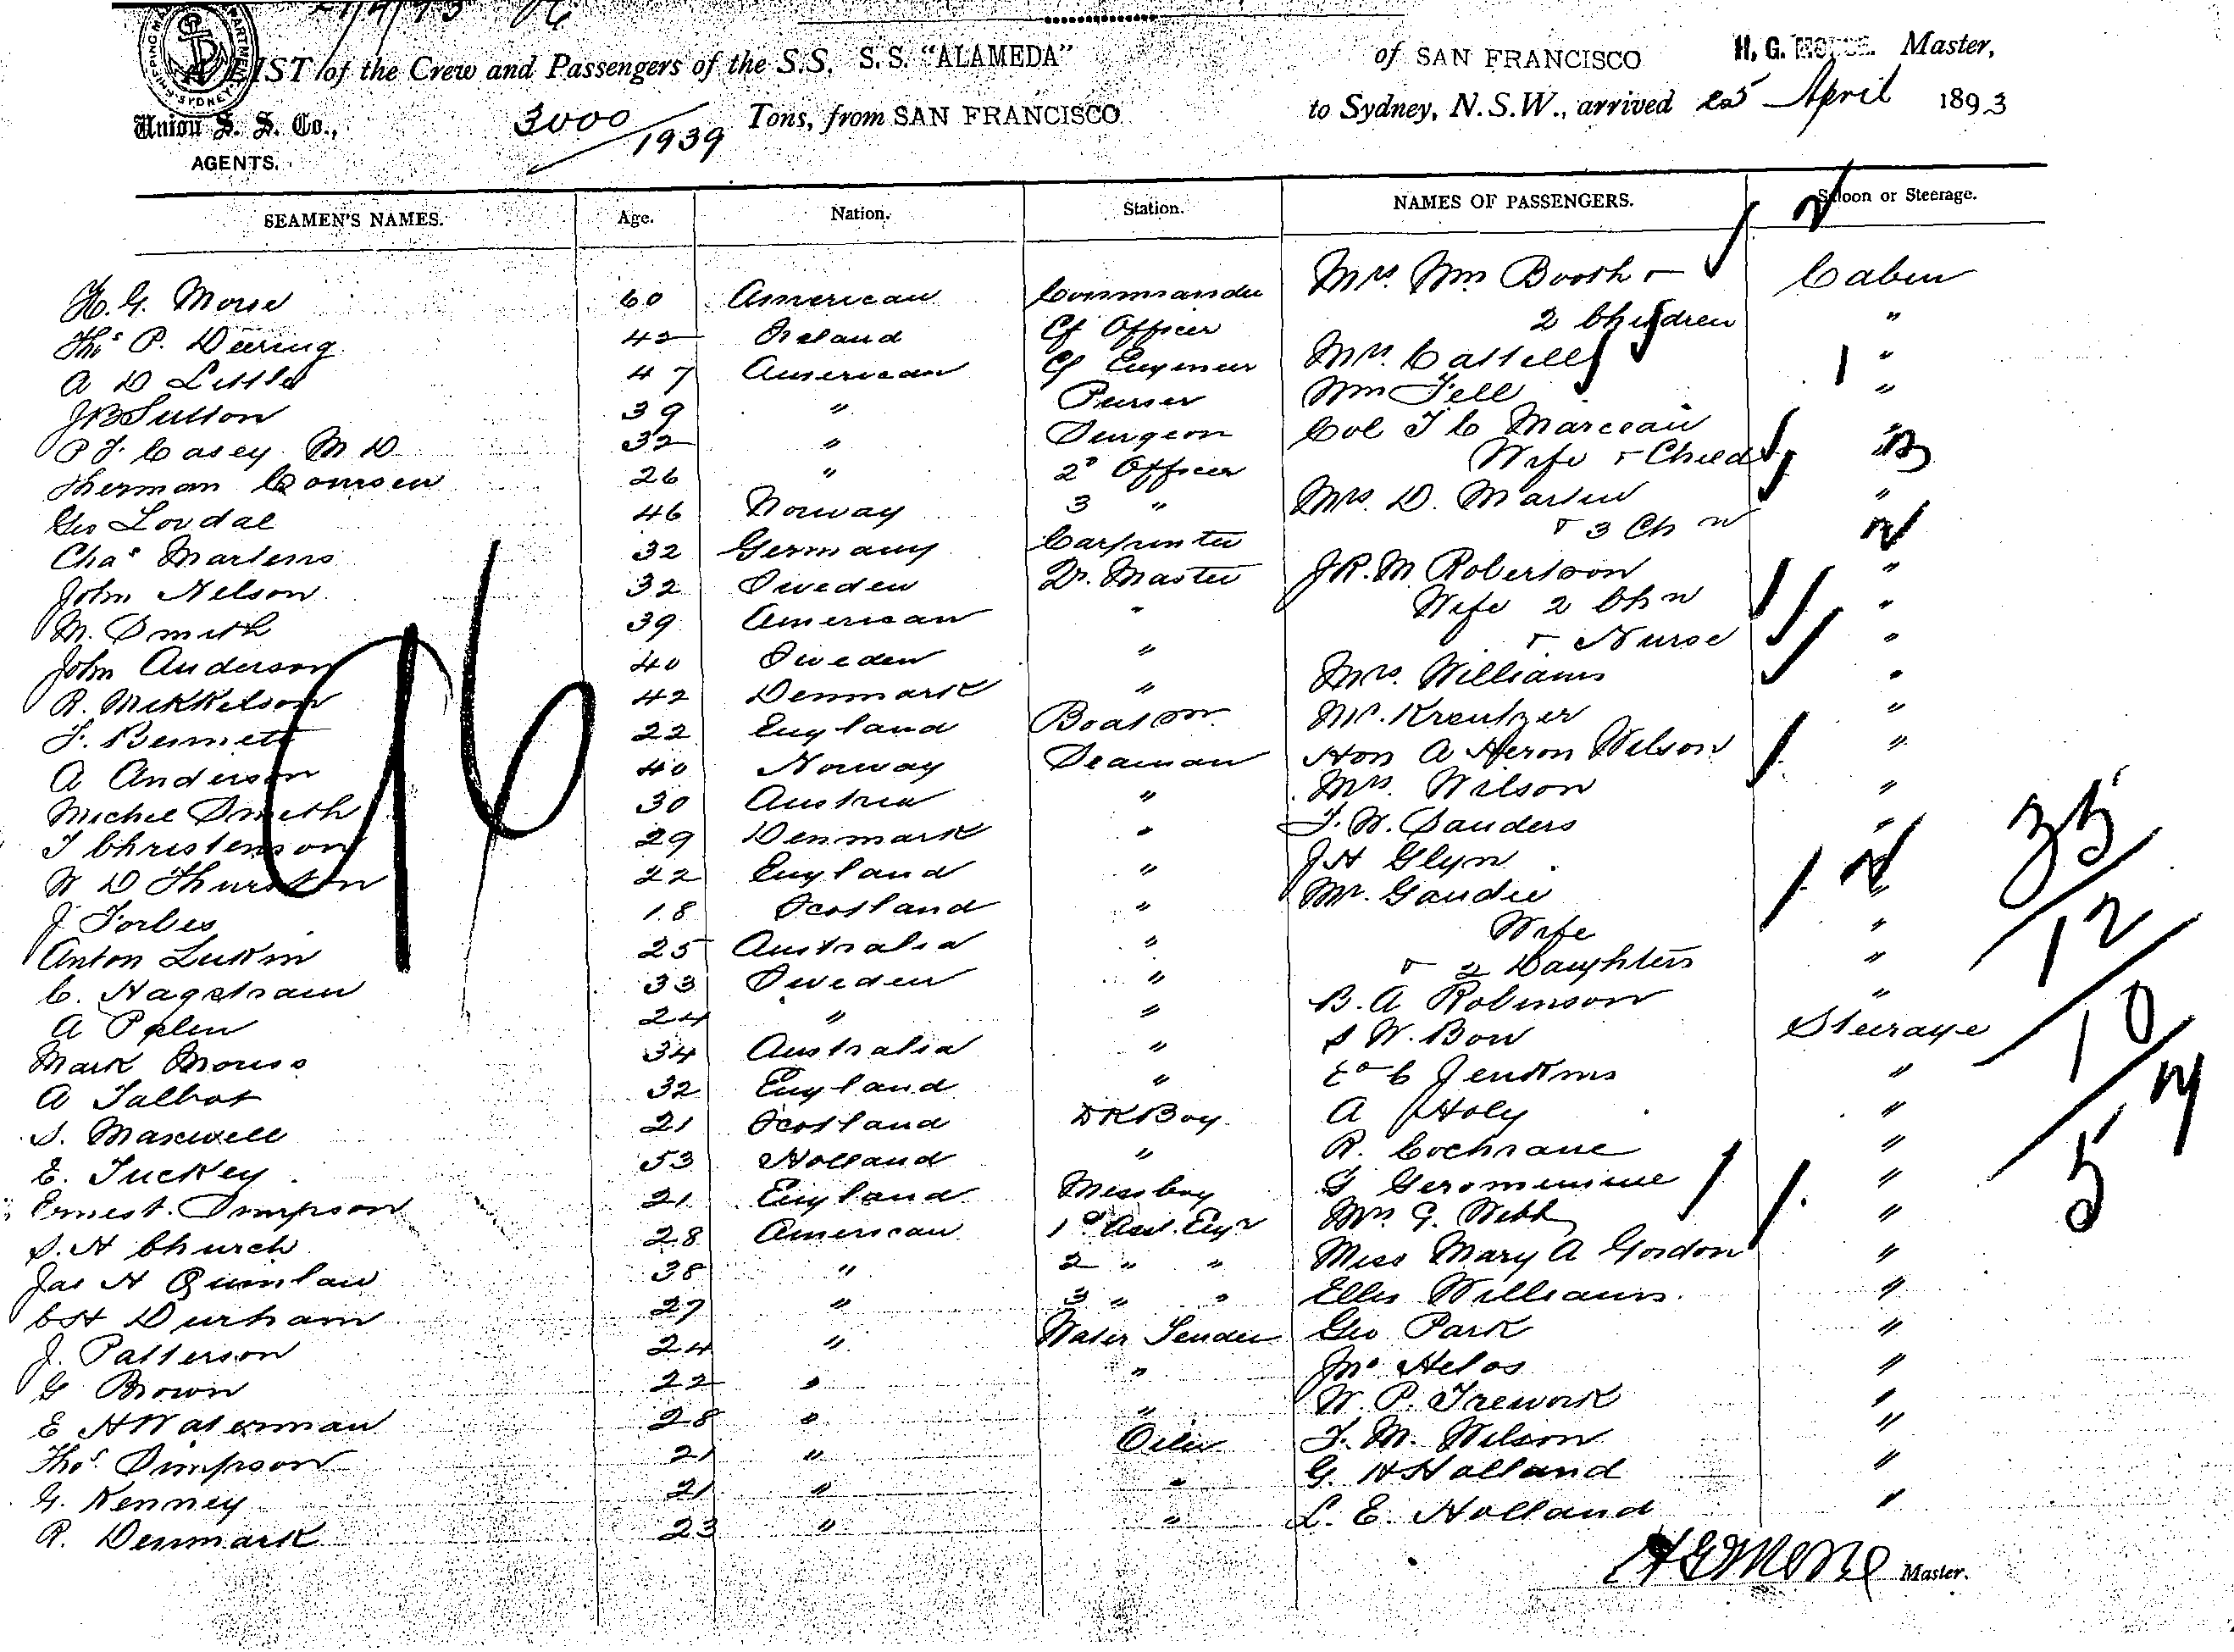 A LIST of the Crew and Passengers of the S.S. S.S. "ALAMEDA" of SAN FRANCISCO H. G. MORSE. Master,
Union S. S. Co., AGENTS. 3000/1939 Tons, from SAN FRANCISCO to Sydney, N.S.W., arrived 25 April 1893
SEAMEN'S NAMES. Age. Nation. Station. NAMES OF PASSENGERS. Saloon or Steerage.
H. G. Morse 60 American Commander Mrs. Wm Booth & Cabin
Thos P. Deering 42 Ireland Cf Officer 2 Children "
A D Little 47 American Cf Engineer Mrs. Cassell "
J B Sutton 39 " Purser Wm Fell "
P J. Casey M D 32 " Surgeon Col T C Marceau "
Sherman 26 " 2d Officer Wife & Child
Geo Lovdal 46 Norway 3 " Mrs. D. Martin "
Chas Martens 32 Germany Carpenter & 3 Ch n
John Nelson 32 Sweden Qr. Master J. R. M Robertson "
M. Smith 39 American " Wife 2 Ch n "
John Anderson 40 Sweden " & Nurse "
R. Mikkelson 42 Denmark " Mrs. Williams "
F. Bennett 22 England Boatsn. Mr. Kreutzer "
A Anderson 40 Norway Seaman Hon A Heron Wilson "
Michel Smith 30 Austria " Mrs. Wilson "
J Christenson 29 Denmark " F. W. Sanders "
W D Thurston 22 England " J H Glyn
J Forbes 18 Scotland " Mr. Gaudie "
Anton Lukin 25 Australia " Wife "
C. Hagstram 33 Sweden " & 2 Daughters "
A Palm 24 " " B. A Robinson "
Mark 34 Australia " S W. Bow Steerage
A Talbot 32 England " C Jenkins "
S. Maxwell 21 Scotland DK Boy A Holy "
E. Tuckey 53 Holland " R. Cochrane "
Ernest Simpson 21 England Messboy G "
S. H Church 28 American 1st Asst. Engr Mrs G. Webb "
Jas H Quinlan 38 " 2 " " Miss Mary A Gordon "
C H Durham 27 " 3 " " Ellis Williams "
J. Patterson 24 " Water Tender Geo Park "
G Brown 22 " " Jno Helos "
E H Waterman 28 " " W. P. Trework "
Thos. Simpson 21 " Oiler F. M. Wilson "
G. Kenney 21 " " G. H Holland "
R. Denmark 23 " " L. E. Holland "
96
35/12/10/5
H G Morse Master.